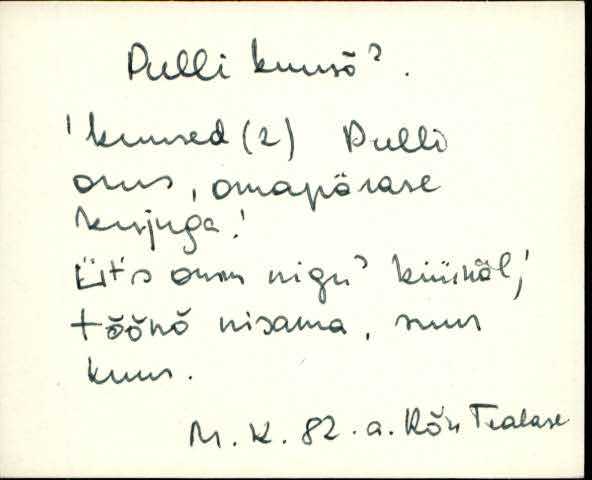 Pulli kuusõ?.
'kuused (2) Pulli
orus, omapärase
kujuga!
Üt's om nigu? küünäl,'
tõõnõ nisama, suur
kuus.
M. K. 82. a. Rõu Tealase